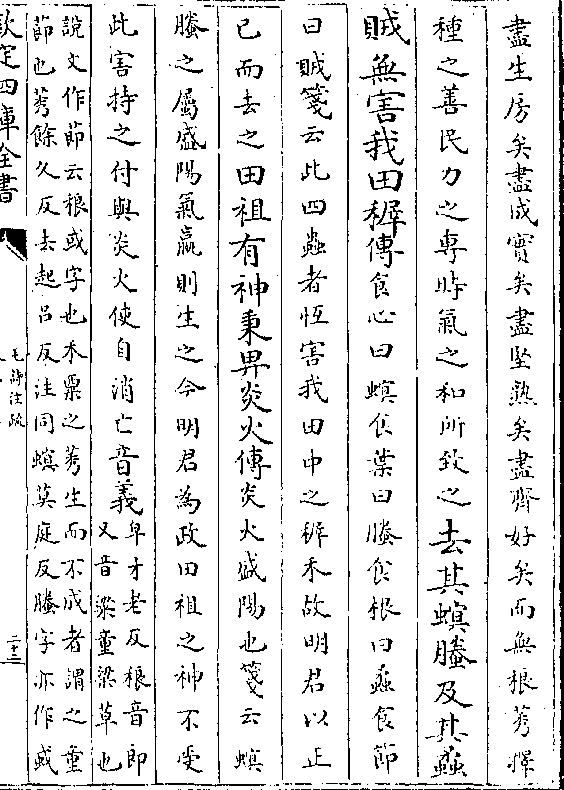 盡生房矣盡成實矣盡堅熟矣盡齊好矣而無稂莠擇
種之善民力之專時氣之和所致之去其螟螣及其蟊
賊無害我田穉傳食心曰螟食葉曰螣食根曰蟊食節
曰賊箋云此四蟲者恆害我田中之穉禾故明君以正
已而去之田祖有神秉畀炎火傳炎火盛陽也箋云螟
螣之屬盛陽氣贏則生之今明君為政田祖之神不受
此害持之付與炎火使自消亡音義
皁才老反稂音郎
又音梁童梁草也
説文作節云稂或字也禾粟之莠生而不成者謂之童
節也莠餘久反去起吕反注同螟莫庭反螣字亦作䘌
欽定四庫全書
毛詩注疏
二十三